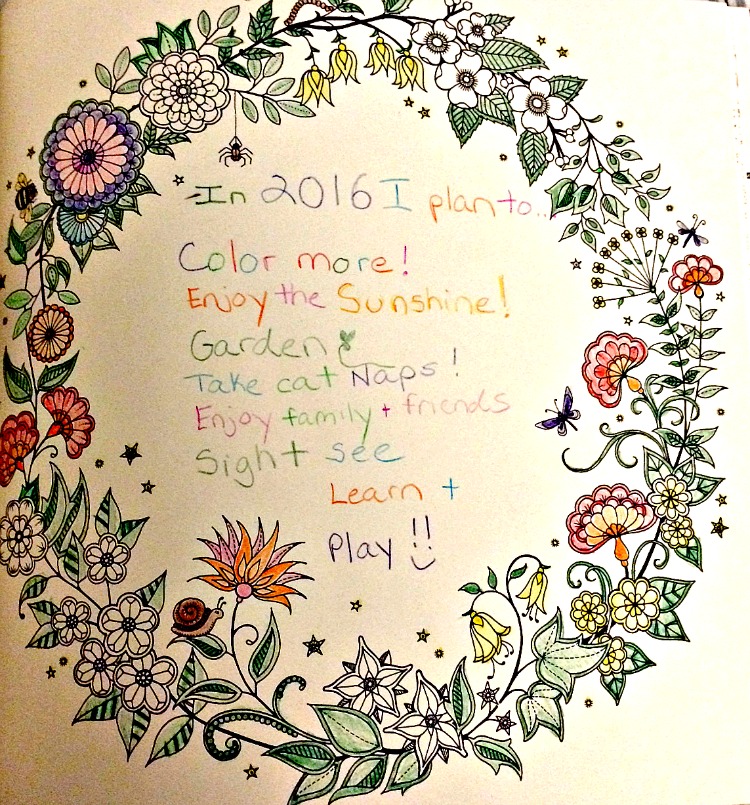 In 2016 I plan to...
Color more!
Enjoy the Sunshine!
Garden
Take cat Naps!
Enjoy family + friends
Sight see
Learn +
Play !!